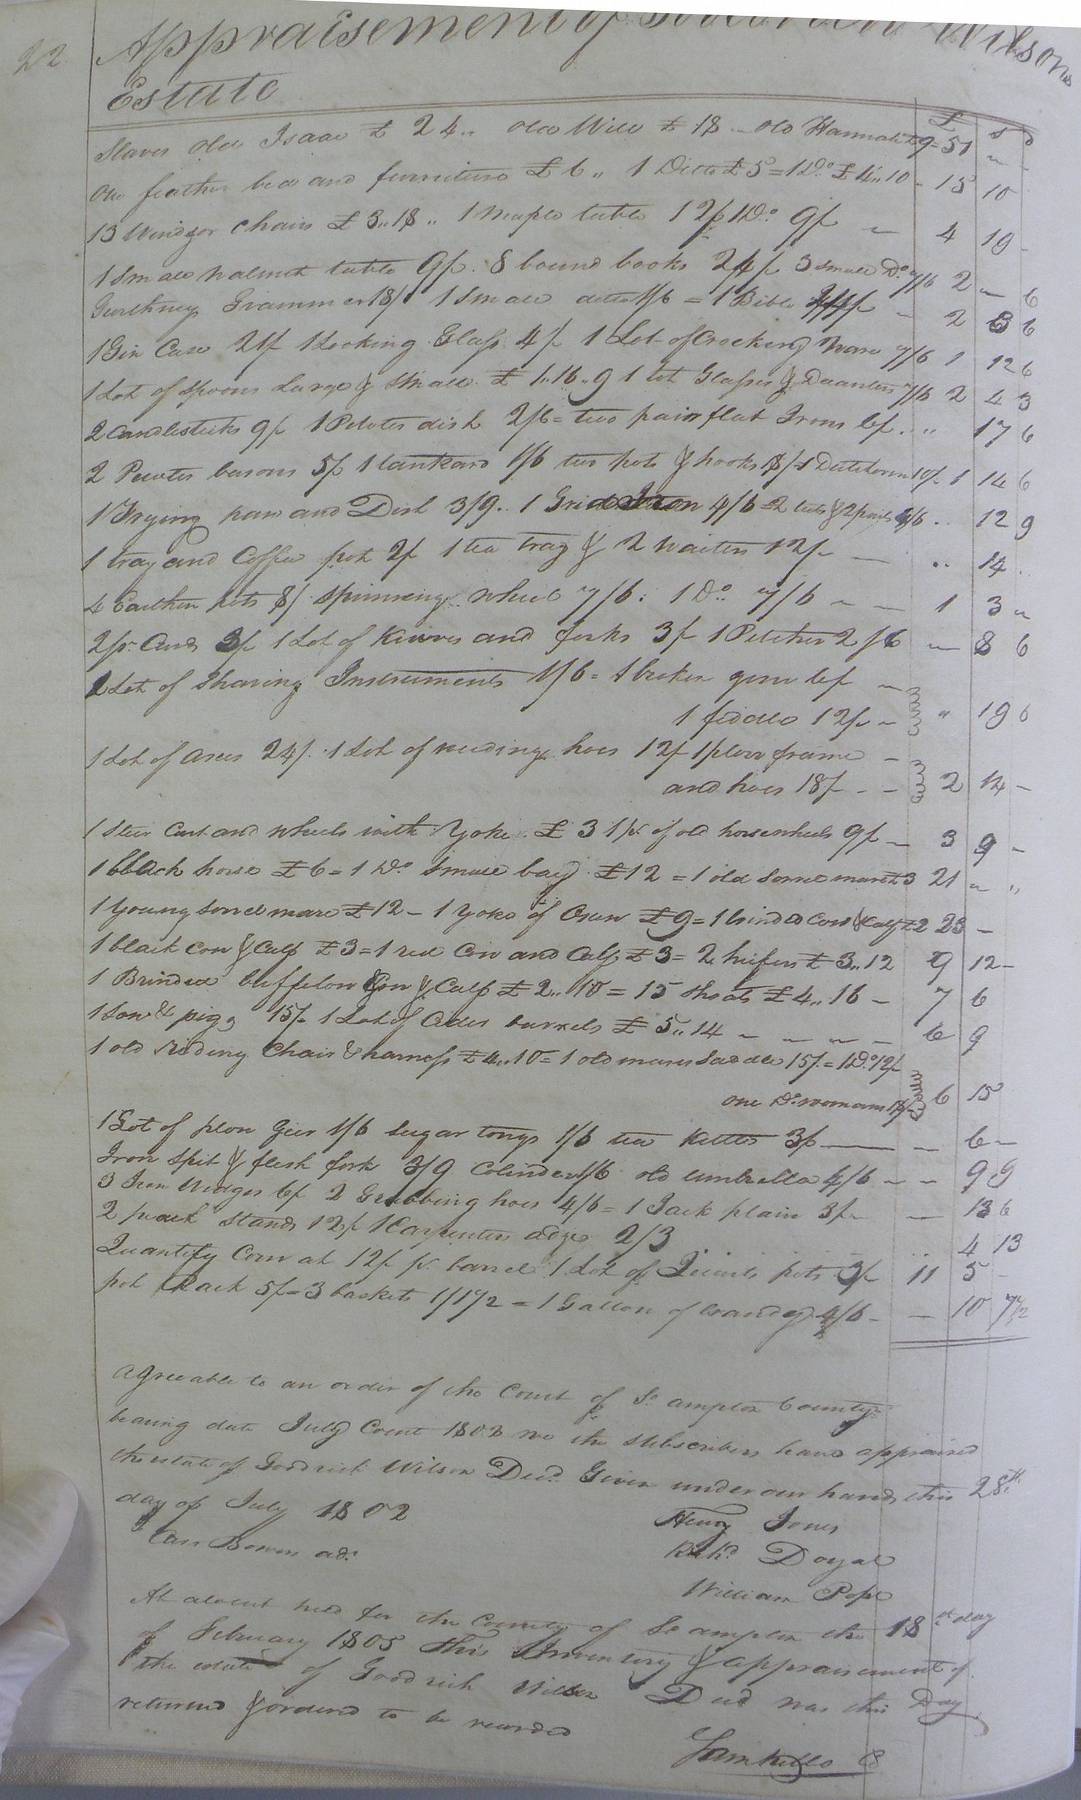 22
Appraisement of Goodrich Wilsons
Estate
£ s d
Slaves old Isaac £ 24 .. old Will £ 18 - old Hannah £9 = 51 "
One feather bed and furniture £ 6 .. 1 Ditto £ 5 = 1 Do £ 4..10 - 15 10
13 Windsor chairs £ 3..18 .. 1 Maple table 12/ 1 Do 9/ 4 19 -
1 Small walnut table 9/. 8 bound books 24/ 3 small Do 7/6 2 " 6
Guthrey Grammer 18/ 1 Small ditto 1/6 = 1 Bible - 2 3 6
1 Gin Case 21/ 1 Looking Glass 4/ 1 Lot of Crockery Ware 7/6 1 12 6
1 Lot of spoons Large & Small £ 1..16..9 1 lot Glasses & Decanters 7/6 2 4 3
2 Candlesticks 9/ 1 Pewter dish 2/6 = two pair flat Irons 6/ .. 17 6
2 Pewter basons 5/ 1 tankard 1/6 two pots & hooks 18/ 1 Dutch oven 10/ 1 14 6
1 Frying pan and Dish 3/9 .. 1 Grid Iron 4/6 = 2 & 2 pails 4/6 .. 12 9
1 tray and Coffee pot 2/ 1 tea tray & 2 Waiters 12/ .. 14 .
4 Earthen pots 8/ spinning wheel 7/6 : 1 Do 7/6 1 3 "
2 pr. Cards 3/ 1 Lot of Knives and forks 3/ 1 Pitcher 2/6 8 6
1 Lot of Shaving Instruments 1/6 = 1 broken gun 6/
1 fiddle 12/ " 19 6
1 Lot of axes 24/. 1 Lot of weeding hoes 12/ 1 plow frame
and hoes 18/ - - 2 14 -
1 Steer Cart and wheels with Yoke £ 3 1 pr. of old horsewheels 9/ 3 9 -
1 black horse £ 6 = 1 Do small bay £12 = 1 old Sorrel mare £3 21 " "
1 Young Sorrel mare £12 - 1 Yoke of Oxen £ 9 = 1 brinded Cow & Calf £2 23 -
1 black Cow & Calf £ 3 = 1 red Cow and Calf £ 3 = 2 heifers £ 3..12 9 12 -
1 Brinded Cow & Calf £ 2..10 = 15 Shoats £ 4..16 - 7 6
1 Sow & pigs 15/ 1 Lot of Cider barrels £ 5..14 6 9
1 old Riding Chair & harness £ 4..10 = 1 old mans Saddle 15/ = 1 Do 12/
one Do womans 18/ 6 15
1 Lot of plow Geer 1/6 Sugar tongs 1/6 tea Kettle 3/ 6 -
Iron Spit & flesh fork 3/9 Colinder 1/6 old umbrella 4/6 - - 9 9
3 Iron Wedges 6/ 2 Grubbing hoes 4/6 = 1 Jack plain 3/ 13 6
2 stands 12/ 1 Carpenters adze 2/3 .. 4 13
Quantity Corn at 12/ pr. barrel 1 Lot of pots 3/ 11 5 -
pot Rack 5/ = 3 baskets 1/1 1/2 = 1 Gallon of brandy 4/6 - 10 7 1/2
Agreeable to an order of the Court of So ampton County
bearing date July Court 1802 we the Subscribers have appraised
the estate of Goodrich Wilson Decd. Given under our hands this 28th
day of July 1802
Henry Jones
Carr Bowen adr.
Richd. Doyal
William Pope
At a Court held for the County of So ampton the 18th day
of February 1805 This Inventory & appraisement of
the estate of Goodrich Wilson Decd was this Day
returned & ordered to be recorded